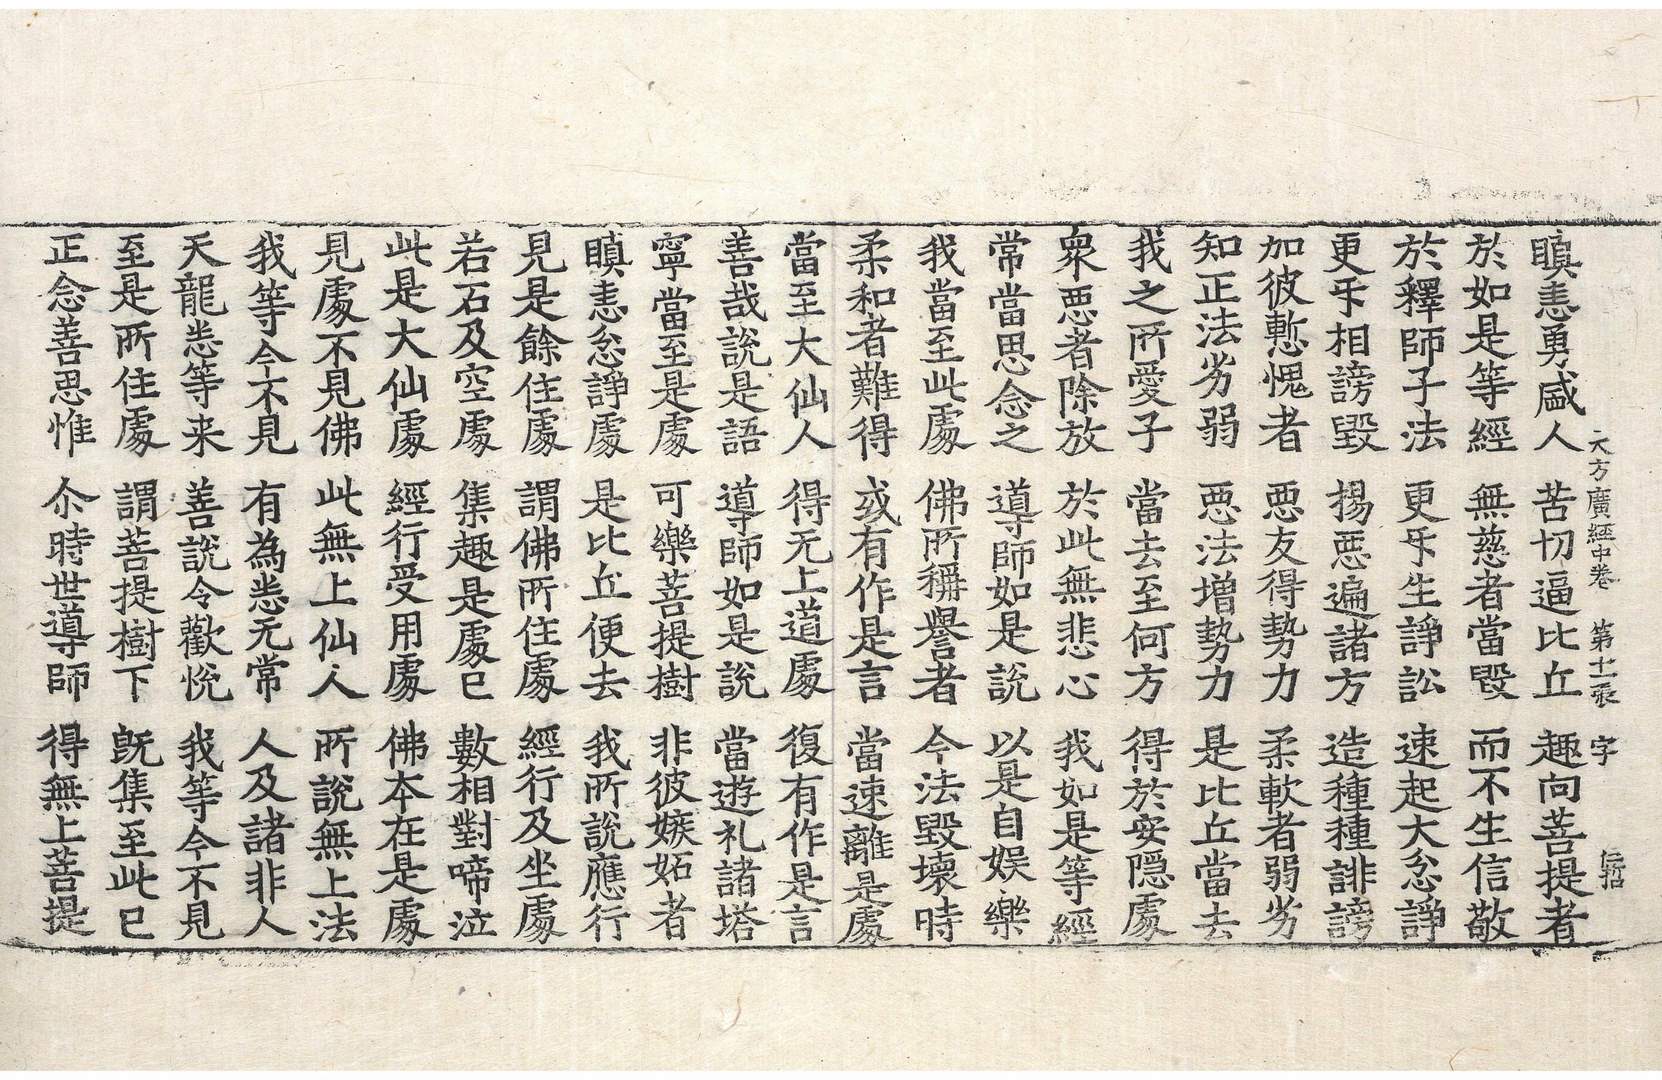 大方廣經中卷 第十一張 字
瞋恚勇盛人 苦切逼比丘 趣向菩提者
於如是等經 無慈者當毀 而不生信敬
於釋師子法 更㸦生諍訟 速起大忿諍
更㸦相謗毀 揚惡遍諸方 造種種誹謗
加彼慙愧者 惡友得勢力 柔軟者弱劣
知正法劣弱 惡法增勢力 是比丘當去
我之所愛子 當去至何方 得於安隱處
衆惡者除放 於此無悲心 我如是等經
常當思念之 導師如是說 以是自娛樂
我當至此處 佛所稱譽者 今法毀壞時
柔和者難得 或有作是言 當速離是處
當至大仙人 得无上道處 復有作是言
善哉說是語 導師如是說 當遊礼諸塔
寧當至是處 可樂菩提樹 非彼嫉妬者
瞋恚忿諍處 是比丘便去 我所說應行
見是餘住處 謂佛所住處 經行及坐處
若石及空處 集趣是處已 數相對啼泣
此是大仙處 經行受用處 佛本在是處
見處不見佛 此無上仙人 所說無上法
我等今不見 有為悉无常 人及諸非人
天龍悉等来 善說令歡悅 我等今不見
至是所住處 謂菩提樹下 既集至此已
正念善思惟 尒時世導師 得無上菩提